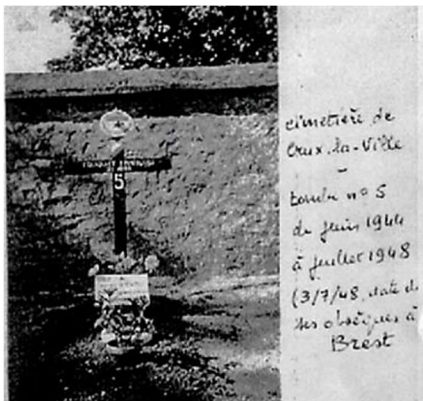 5
cimetière de
Crux-la-Ville
-
tombe n° 5
de juin 1944
à juillet 1948
(3/7/48, date de
ses obsèques à
Brest